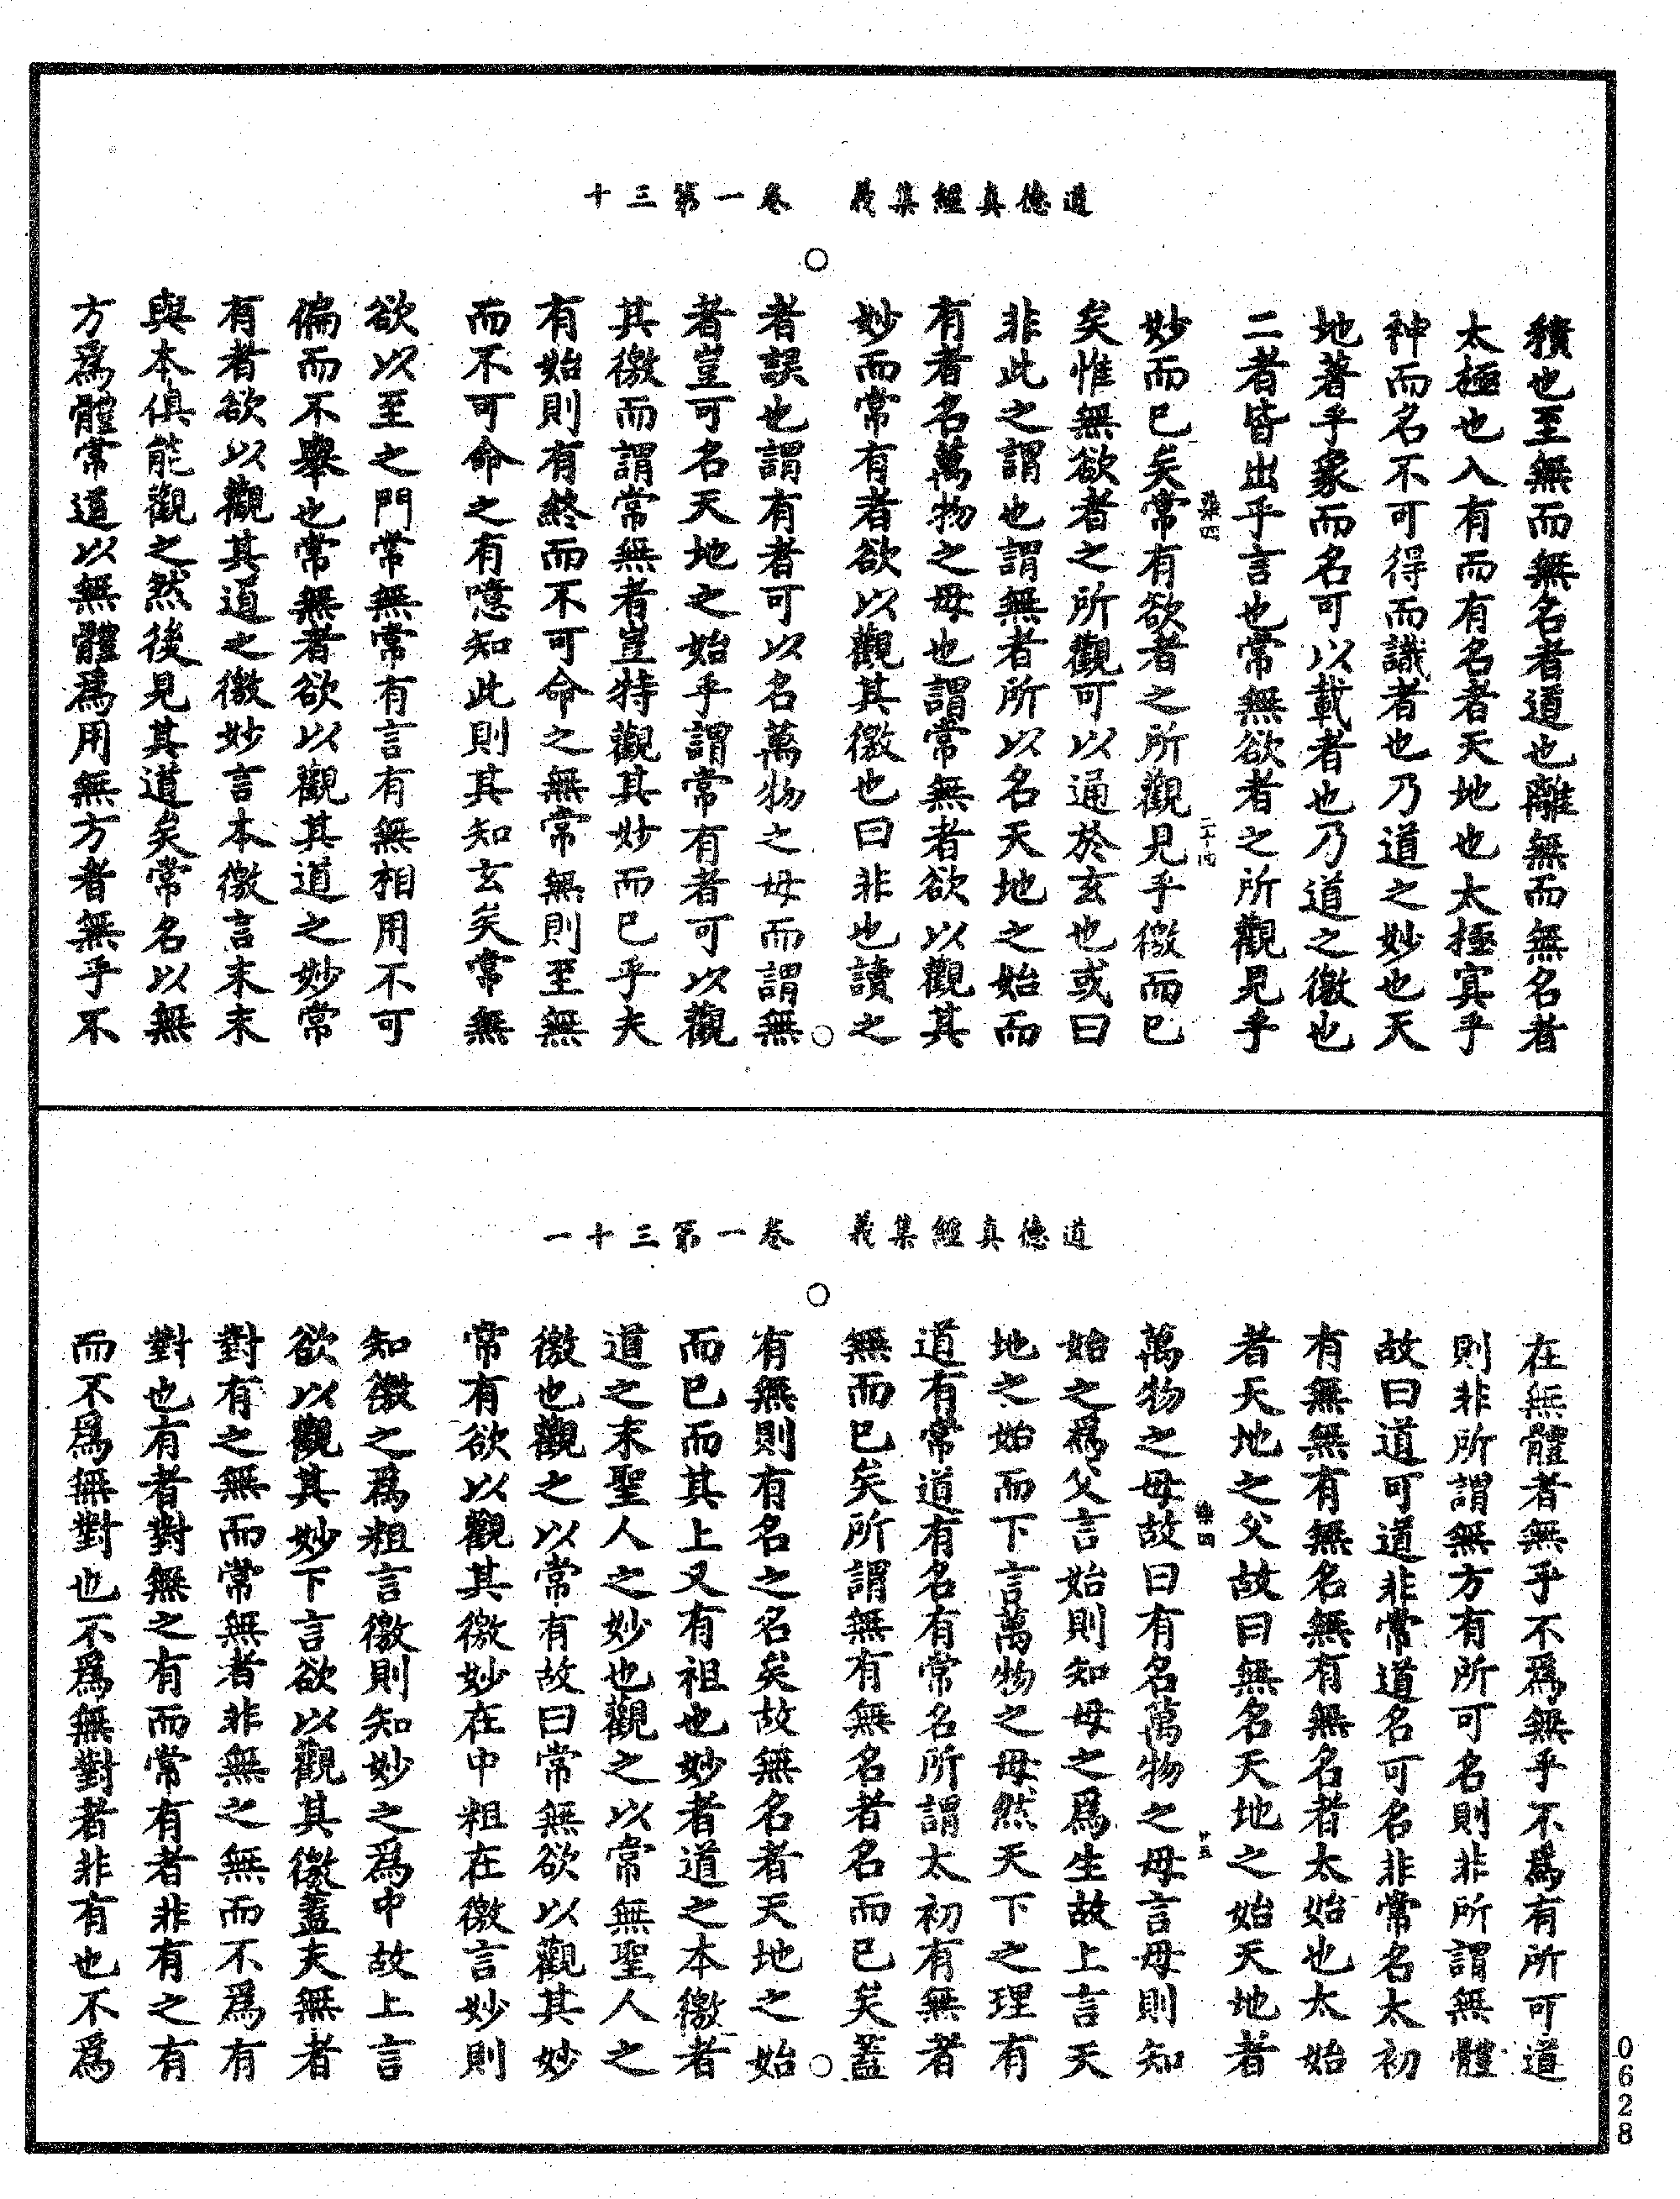 道德真經集義　卷一第三十
積也至無而無名者道也離無而無名者
太極也入有而有名者天地也太極寘乎
神而名不可得而識者也乃道之妙也天
地著乎象而名可以載者也乃道之徼也
二者皆出乎言也常無欲者之所觀見乎
妙而已矣常有欲者之所觀見乎徼而已
矣惟無欲者之所觀可以通於玄也或曰
非此之謂也謂無者所以名天地之始而
有者名萬物之母也謂常無者欲以觀其
妙而常有者欲以觀其徼也曰非也讀之
者誤也謂有者可以名萬物之母而謂無
者豈可名天地之始乎謂常有者可以觀
其徼而謂常無者豈特觀其妙而已乎夫
有始則有終而不可命之無常無則至無
而不可命之有噫知此則其知玄矣常無
欲以至之門常無常有言有無相用不可
偏而不舉也常無者欲以觀其道之妙常
有者欲以觀其道之徼妙言本徼言末末
與本俱能觀之然後見其道矣常名以無
方為體常道以無體為用無方者無乎不
道德真經集義　卷一第三十一
在無體者無乎不為無乎不為有所可道
則非所謂無方有所可名則非所謂無體
故曰道可道非常道名可名非常名太初
有無無有無名無有無名者太始也太始
者天地之父故曰無名天地之始天地者
萬物之母故曰有名萬物之母言母則知
始之為父言始則知母之為生故上言天
地之始而下言萬物之母然天下之理有
道有常道有名有常名所謂太初有無者
無而已矣所謂無有無名者名而已矣蓋
有無則有名之名矣故無名者天地之始
而已而其上又有祖也妙者道之本徼者
道之末聖人之妙也觀之以常無聖人之
徼也觀之以常有故曰常無欲以觀其妙
常有欲以觀其徼妙在中粗在徼言妙則
知徼之為粗言徼則知妙之為中故上言
欲以觀其妙下言欲以觀其徼蓋夫無者
對有之無而常無者非無之無而不為有
對也有者對無之有而常有者非有之有
而不為無對也不為無對者非有也不為
0628